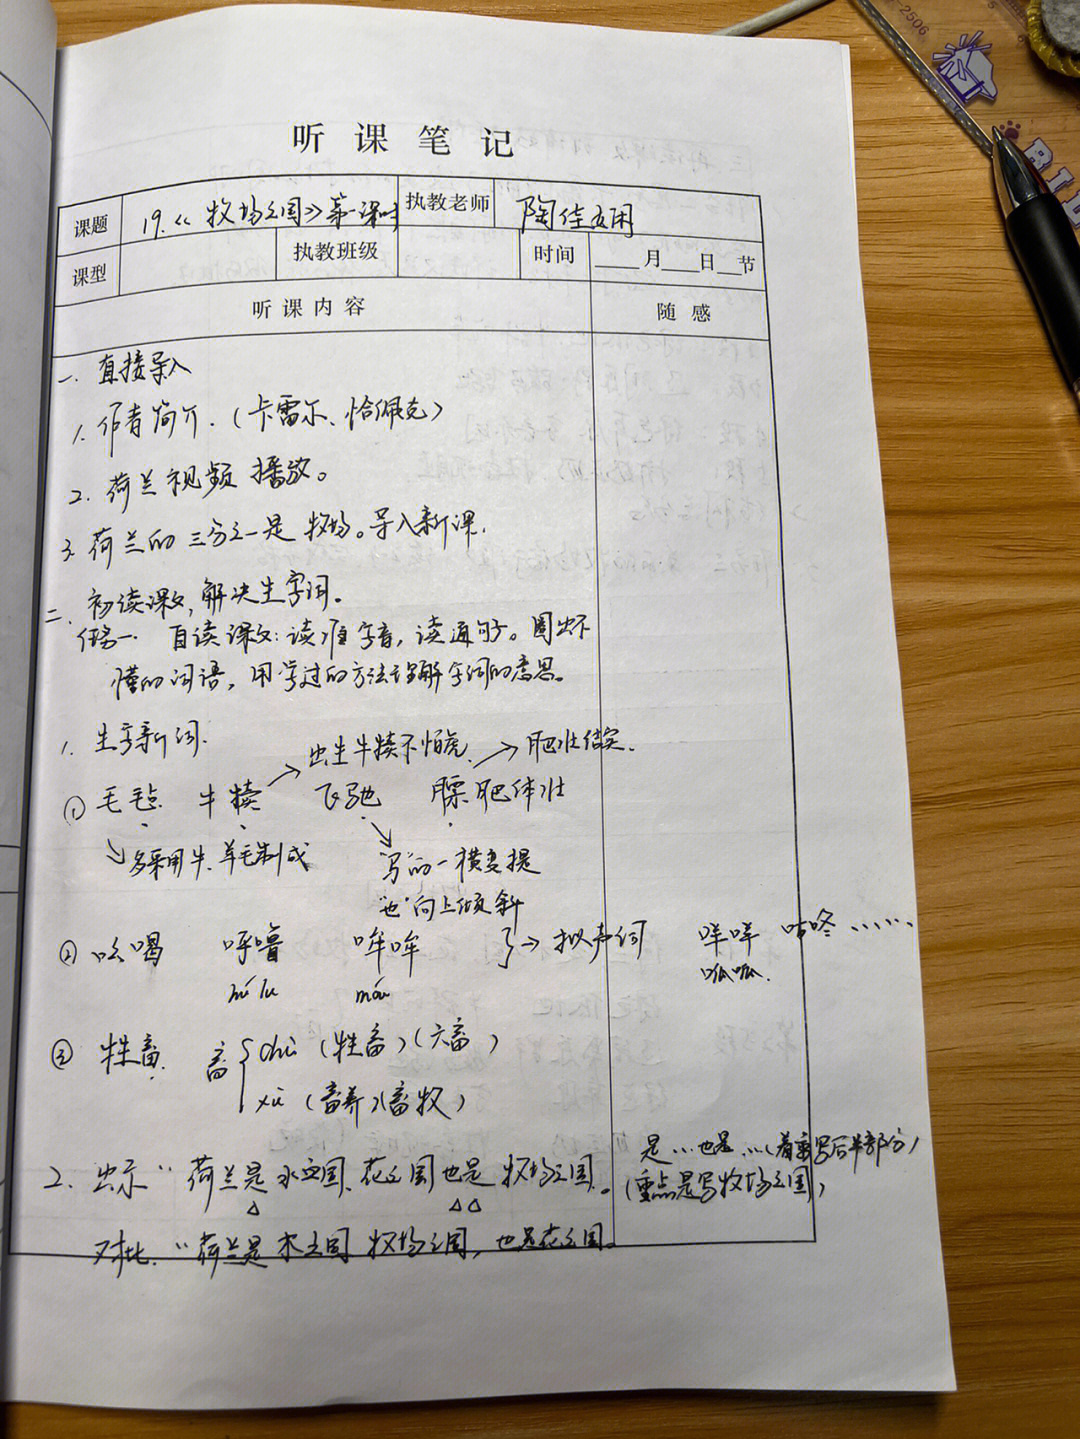 听课笔记
课题 19.《牧场之国》第一课时 执教老师 陶佳
课型 执教班级 时间 月 日 节
听课内容 随感
一. 直接导入
1. 作者简介.（卡雷尔、恰佩克）
2. 荷兰视频播放。
3. 荷兰的三分之一是牧场。导入新课.
二. 初读课文,解决生字词.
任务一. 自读课文:读准字音,读通句子。圈出不
懂的词语,用学过的方法理解字词的意思。
1. 生字新词.
出生牛犊不怕虎 → 肥壮结实.
① 毛毡 牛犊 飞驰 膘肥体壮
多采用牛、羊毛制成 "马"的一横变提
"也"向上倾斜
② 吆喝 呼噜 哞哞 → 拟声词 咩咩 咕咚……
hū lu mōu 呱呱.
③ 牲畜 畜 chù（牲畜）（六畜）
xù（畜养）（畜牧）
是…也是…（着重写后半部分）
2. 出示 "荷兰是水之国、花之国也是牧场之国.（重点是写牧场之国）
对比. "荷兰是水之国 牧场之国, 也是花之国.
2506